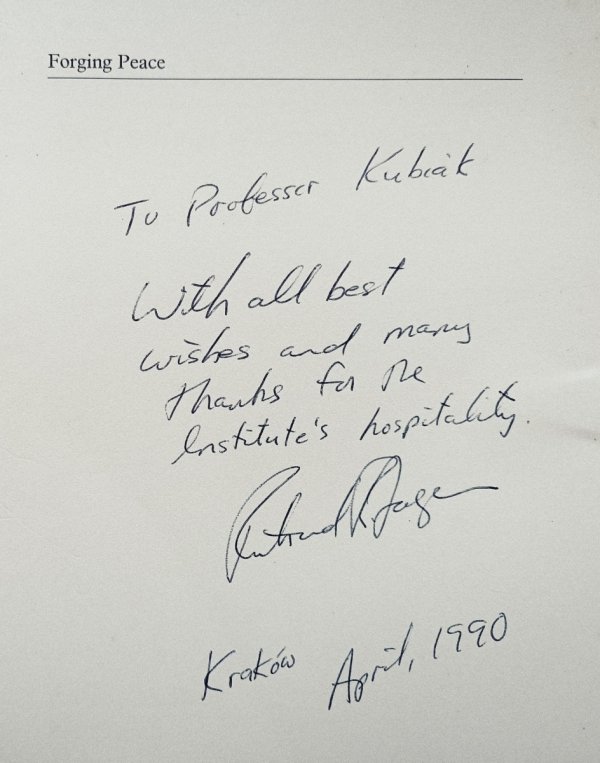 Forging Peace
To Professor Kubiak
With all best
wishes and many
thanks for the
Institute's hospitality.
Kraków April, 1990